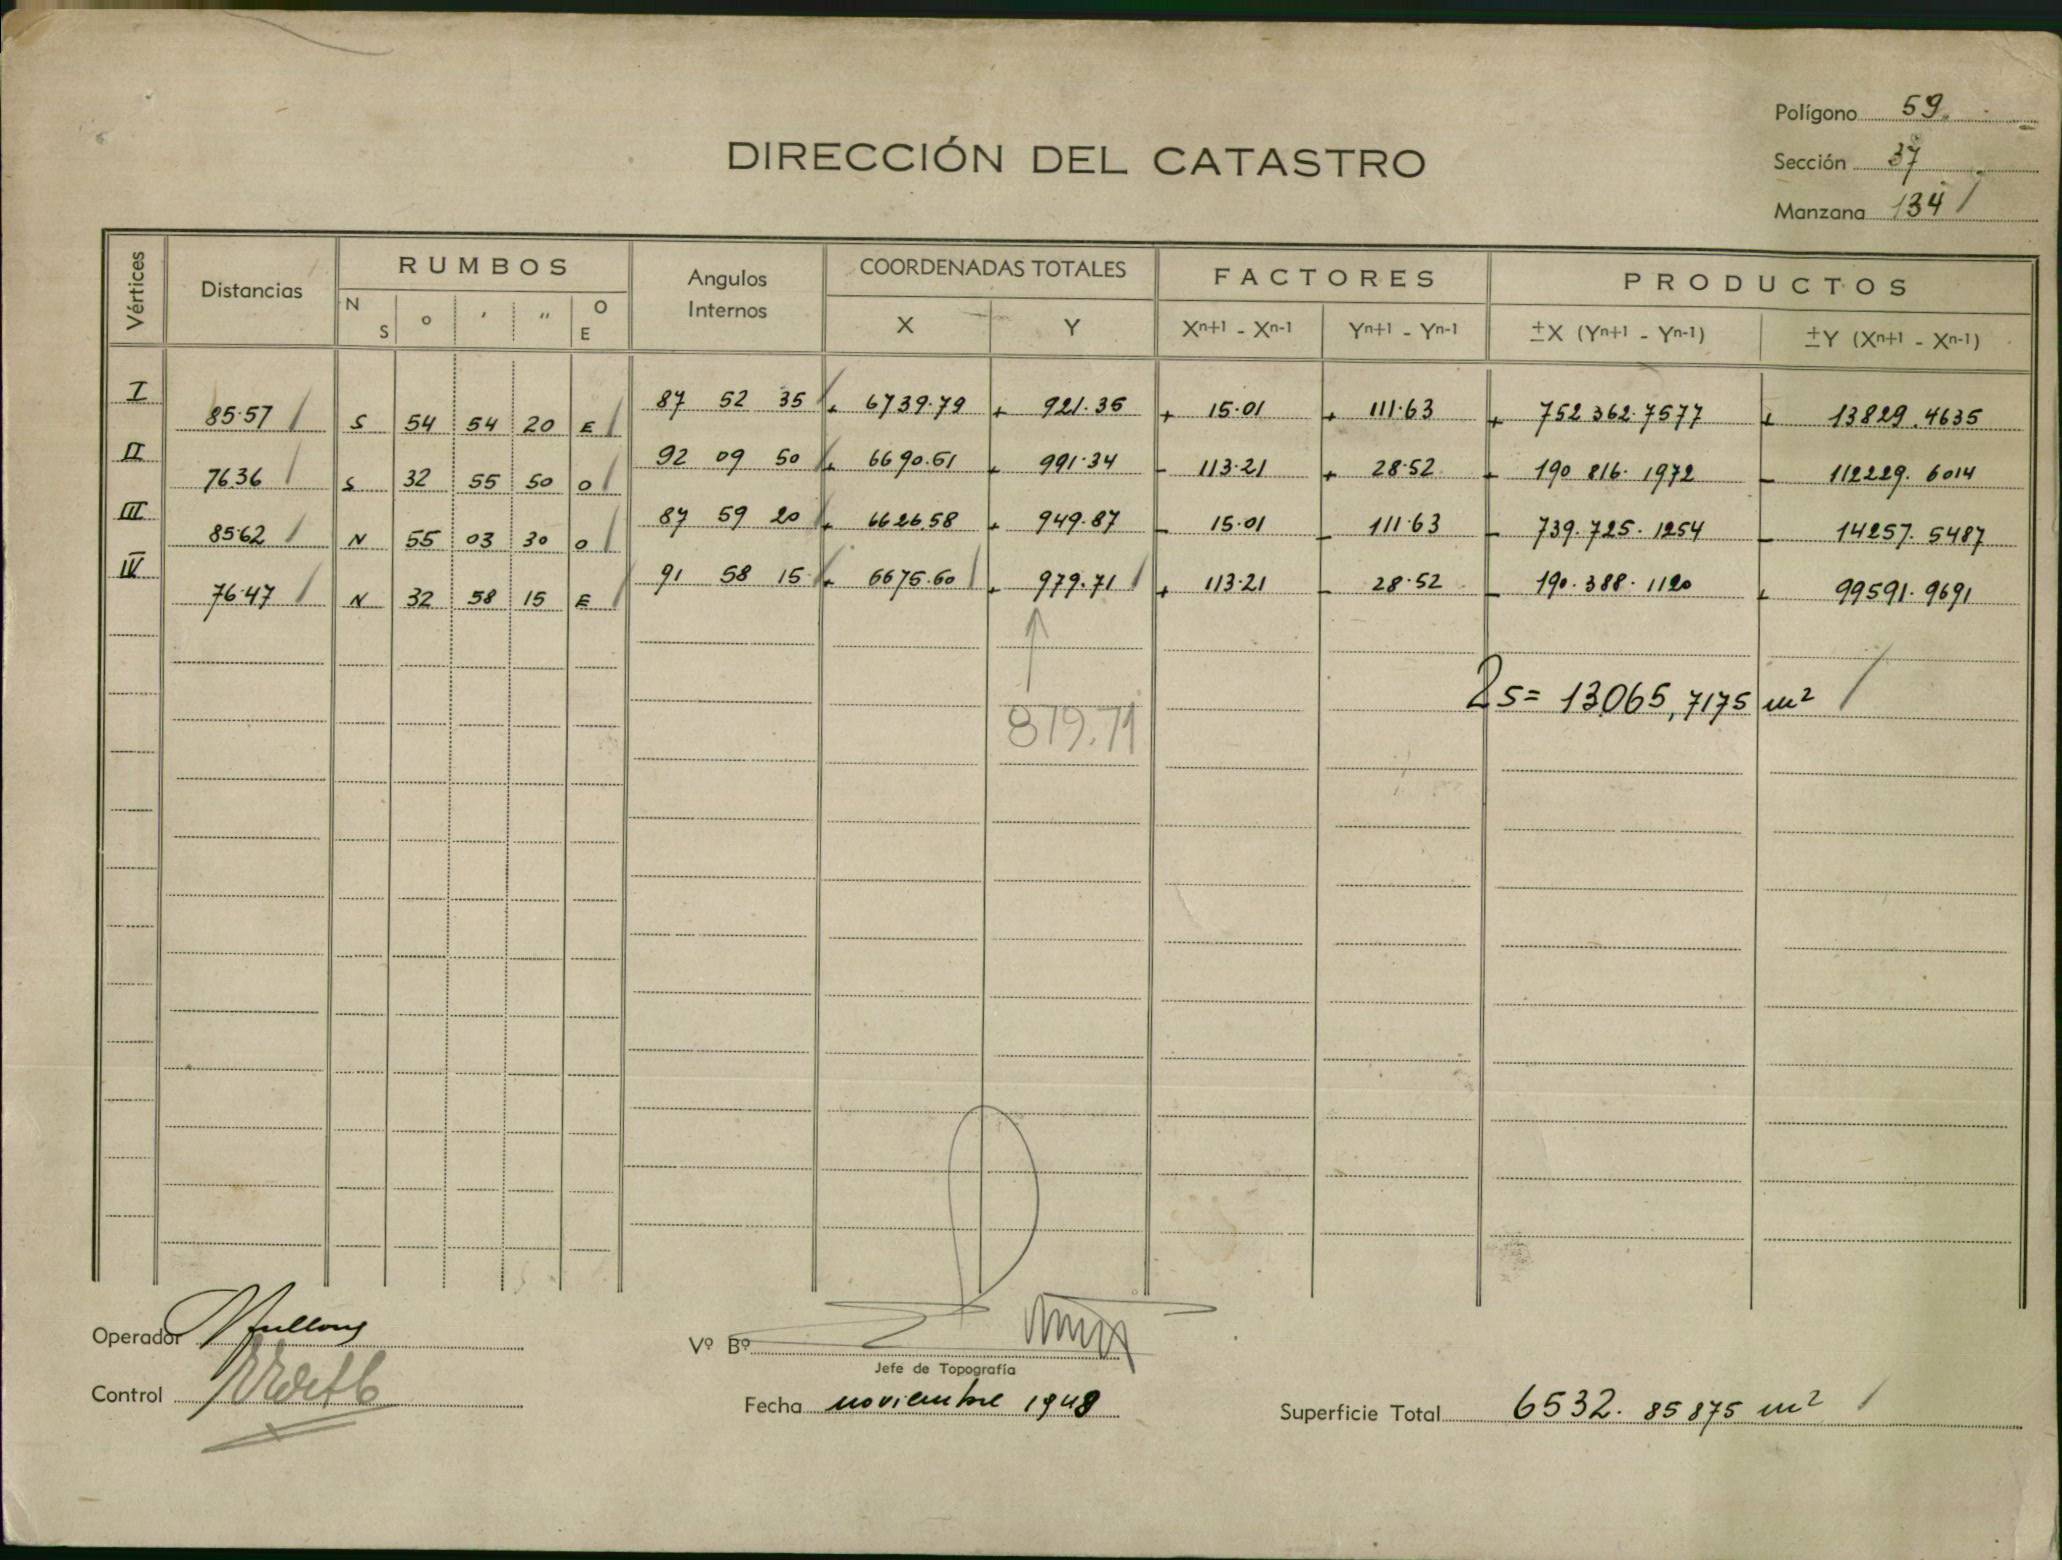 Polígono 59.
DIRECCIÓN DEL CATASTRO
Sección 37
Manzana 134
Vértices Distancias RUMBOS Angulos Internos COORDENADAS TOTALES FACTORES PRODUCTOS
N S o ' " O E X Y Xn+1 - Xn-1 Yn+1 - Yn-1 ±X (Yn+1 - Yn-1) ±Y (Xn+1 - Xn-1)
I 87 52 35 + 6739.79 + 921.35 + 15.01 + 111.63 + 752 362.7577 + 13829.4635
85.57 S 54 54 20 E
II 92 09 50 + 6690.61 + 991.34 - 113.21 + 28.52 + 190 816.1972 - 112229.6014
76.36 S 32 55 50 O
III 87 59 20 + 6626.58 + 949.87 - 15.01 - 111.63 - 739.725.1254 - 14257.5487
85.62 N 55 03 30 O
IV 91 58 15 + 6675.60 + 979.71 + 113.21 - 28.52 - 190.388.1120 + 99591.9691
76.47 N 32 58 15 E
2s = 13065,7175 m²
879.71
Operador
Vº Bº
Jefe de Topografía
Control
Fecha noviembre 1948
Superficie Total 6532.85875 m²